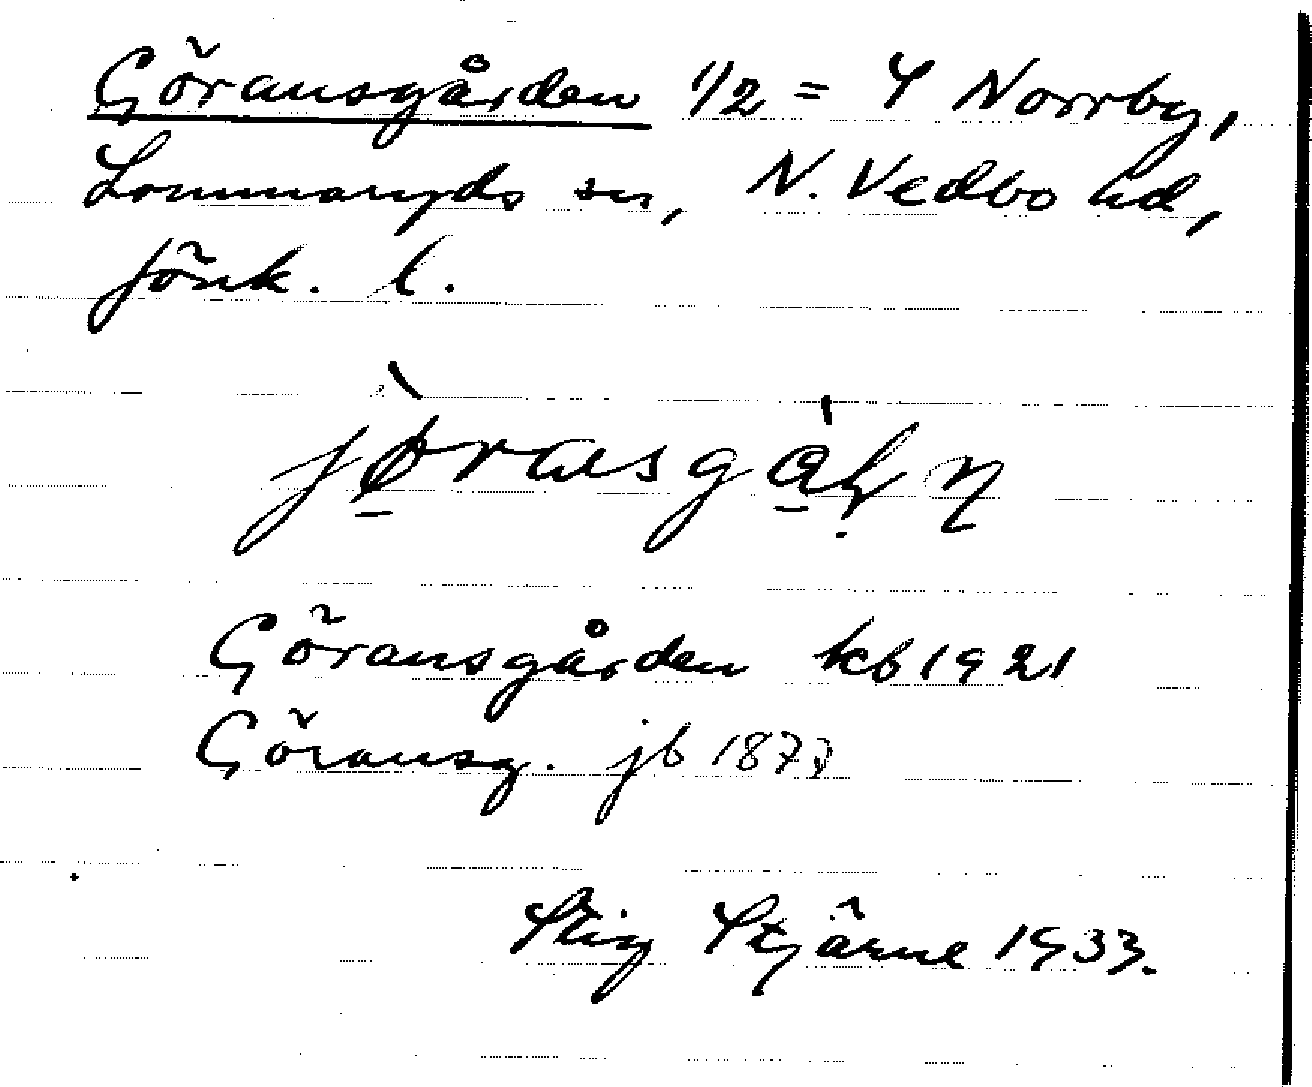 Göransgården 1/2 = 4 Norrby,
Lommaryds sn, N. Vedbo hd,
Jönk. l.
Göransgården kb 1921
Göransg. jb 1877
Stig Stjärne 1933.